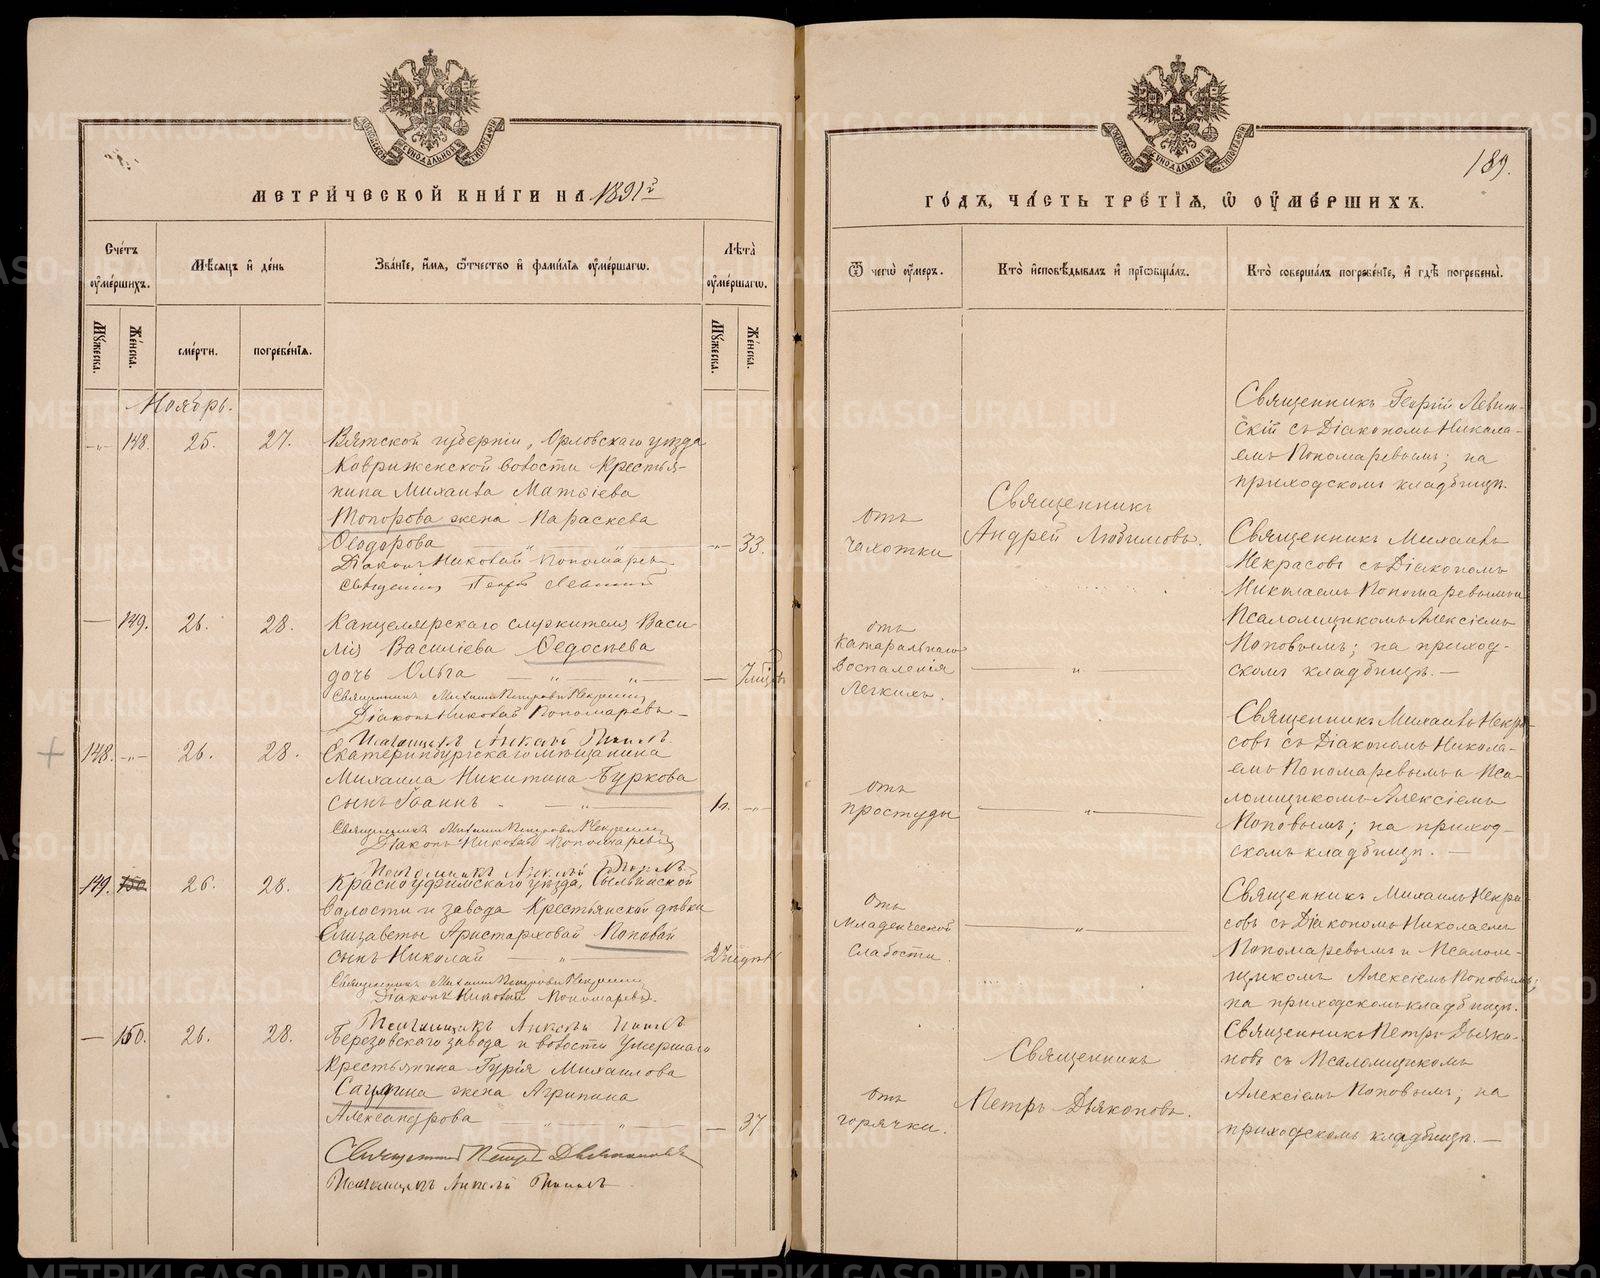 МЕТРИЧЕСКОЙ КНИГИ НА 1891 г
Счетъ оумершихъ.
Мѣсяцъ и день
Званіе, имя, ѿчество и фамилія оумершагѡ.
Лѣта оумершагѡ.
Мужеска.
Женска.
смерти.
погребенія.
Мужеска.
Женска.
Ноябрь.
-"- 148. 25. 27. Вятской губерніи, Орловскаго уѣзда
волости Крестья-
нина Михаила Матвіева
Топорова жена Параскева
Ѳеодорова -"- 33.
Діаконъ Николай Пономаревъ
Священникъ Георгій Левитскій
— 149. 26. 28. Канцелярскаго служителя Васи-
лія Василіева Ѳедосѣева
дочь Ольга — " — " — — 7 мѣсяцовъ
Священникъ Михаилъ Петровъ Некрасовъ
Діаконъ Николай Пономаревъ
Псаломщикъ Алексѣй Поповъ
148. -"- 26. 28. Екатеринбургскаго мѣщанина
Михаила Никитина Буркова
сынъ Іоаннъ — " — -"-
Священникъ Михаилъ Петровъ Некрасовъ
Діаконъ Николай Пономаревъ
Псаломщикъ Алексѣй Поповъ
149. 150. 26. 28. Красноуфимскаго уѣзда, Сылвинской
волости и завода Крестьянской дѣвки
Елизаветы Аристарховой Поповой
сынъ Николай — " —
Священникъ Михаилъ Петровъ Некрасовъ
Діаконъ Николай Пономаревъ.
Псаломщикъ Алексѣй Поповъ
— 150. 26. 28. Березовскаго завода и волости умершаго
Крестьянина Гурія Михаилова
жена Агрипина
Александрова " — " — — 37
Священникъ Петръ Дьяконовъ
Псаломщикъ Алексѣй Поповъ
189.
ГОДЪ, ЧАСТЬ ТРЕТІЯ, Ѡ ОУМЕРШИХЪ.
Ѿ чегѡ оумеръ.
Кто исповѣдывалъ и пріобщалъ.
Кто совершалъ погребеніе, и гдѣ погребены.
отъ
чахотки
Священникъ
Андрей Любимовъ.
Священникъ Георгій Левит-
скій съ Діакономъ Никола-
емъ Пономаревымъ; на
приходскомъ кладбищѣ.
отъ
катаральнаго
воспаленія
легкихъ.
— " —
Священникъ Михаилъ
Некрасовъ съ Діакономъ
Николаемъ Пономаревымъ и
Псаломщикомъ Алексіемъ
Поповымъ; на приход-
скомъ кладбищѣ. —
отъ
простуды
— " —
Священникъ Михаилъ Некра-
совъ съ Діакономъ Никола-
емъ Пономаревымъ и Пса-
ломщикомъ Алексіемъ
Поповымъ; на приход-
скомъ кладбищѣ. —
отъ
младенческой
слабости.
— " —
Священникъ Михаилъ Некра-
совъ съ Діакономъ Николаемъ
Пономаревымъ и Псалом-
щикомъ Алексіемъ Поповымъ;
на приходскомъ кладбищѣ.
отъ
горячки.
Священникъ
Петръ Дьяконовъ.
Священникъ Петръ Дьяко-
новъ съ Псаломщикомъ
Алексіемъ Поповымъ; на
приходскомъ кладбищѣ. —
METRIKI.GASO-URAL.RU